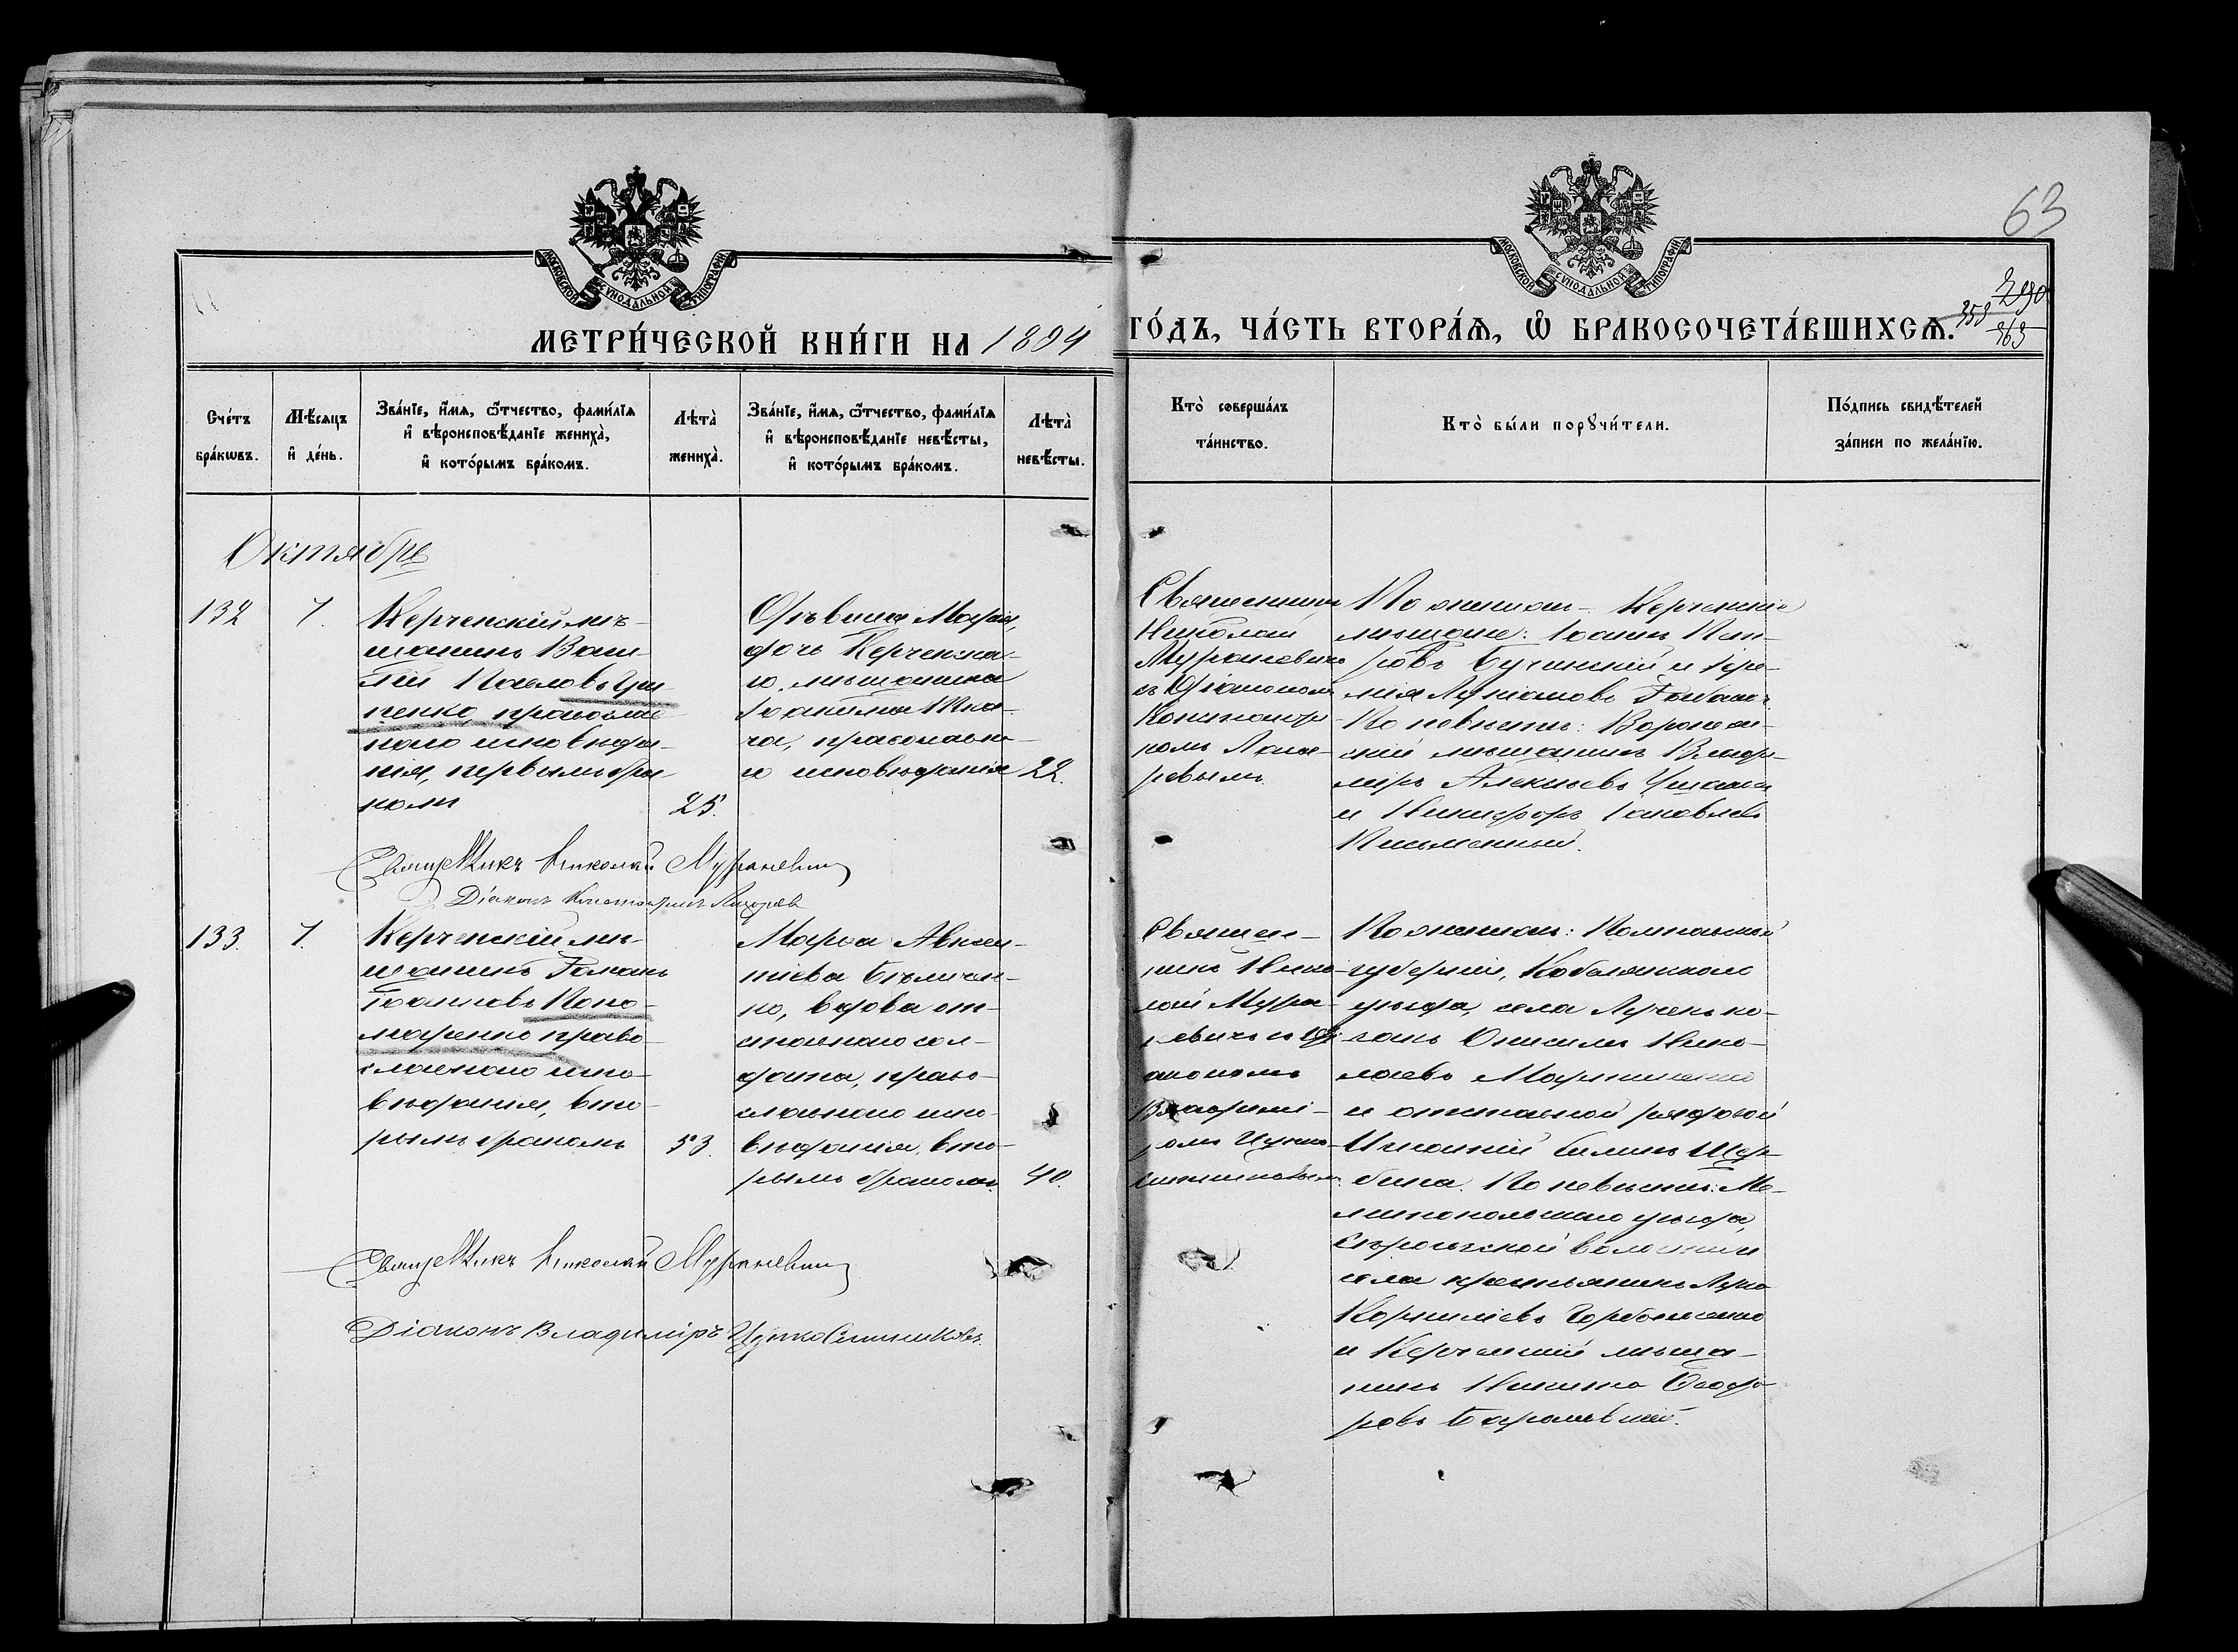 63
МОСКОВСКОЙ СУНОДАЛЬНОЙ ТИПОГРАФІИ
МОСКОВСКОЙ СУНОДАЛЬНОЙ ТИПОГРАФІИ
290
359
363
МЕТРИ́ЧЕСКОЙ КНИ́ГИ НА 1894
ГО́ДЪ, ЧА́СТЬ ВТОРА́Я, Ѿ БРАКОСОЧЕТА́ВШИХСЯ.
Сче́тъ
бра́кѡвъ.
Мѣ́сяцъ
и҆ де́нь.
Зва́нїе, и҆́мѧ, ѻ҆́тчество, фами́лїѧ
и҆ вѣроисповѣ́данїе жениха̀,
и҆ кото́рымъ бра́комъ.
Лѣта̀
жениха̀.
Зва́нїе, и҆́мѧ, ѻ҆́тчество, фами́лїѧ
и҆ вѣроисповѣ́данїе невѣ́сты,
и҆ кото́рымъ бра́комъ.
Лѣта̀
невѣ́сты.
Кто̀ соверша́лъ
та́инство.
Кто̀ бы́ли порꙋчи́тели.
По́дпись свидѣ́телей
за́писи по жела́нїю.
Октябрь
132
7.
Керченскій мѣ-
щанинъ Васи-
лій Павловъ
пенко, православ-
наго исповѣда-
нія, первымъ бра-
комъ
25.
Дѣвица Марія,
дочь Керченска-
го мѣщанина
православна-
го исповѣданія
22.
Священникъ
Николай
Мураневичъ
съ Діакономъ
Константи-
номъ Лаза-
ревымъ
По женихѣ - Керченскіе
мѣщане: Іоаннъ Пет-
ровъ Бучинскій и Іере-
мія
По невѣстѣ: Воронеж-
скій мѣщанинъ Влади-
міръ Алексѣевъ Ушаковъ
и Никифоръ Іаковлевъ
Письменный.
Священникъ Николай Мураневичъ
Діаконъ Константинъ Лазарев
133.
7.
Керченскій мѣ-
щанинъ Романъ
Іоанновъ Поно-
маренко, право-
славнаго испо-
вѣданія, вто-
рымъ бракомъ
53.
Марѳа Авксен-
тіева Бѣличен-
ко, вдова от-
ставнаго сол-
дата, право-
славнаго испо-
вѣданія, вто-
рымъ бракомъ.
40.
Священ-
никъ Нико-
лай Мура-
невичъ и Ді-
акономъ
Владимі-
ромъ
По женихѣ: Полтавской
губерніи, Кобелякскаго
уѣзда, села
Онисимъ Нико-
лаевъ Мартиненко
и отставной рядовой
Щер-
бина. По невѣстѣ: Ме-
литопольскаго уѣзда,
волости и
села крестьянинъ Лука
Корниліевъ Горбатенко
и Керченскій мѣща-
нинъ Никита Ѳеодо-
ровъ
Священникъ Николай Мураневичъ
Діаконъ Владиміръ